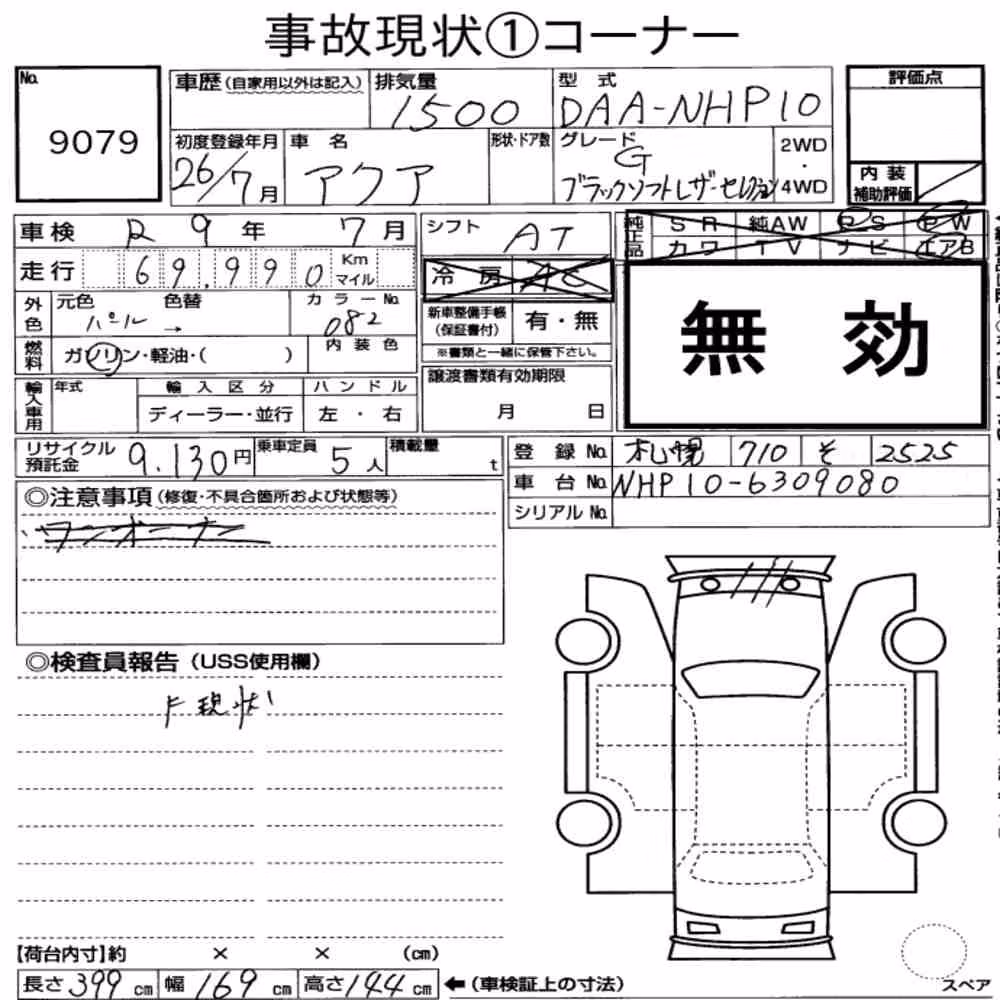 事故現状①コーナー
No. 9079
車歴(自家用以外は記入) 排気量 1500 型式 DAA-NHP10 評価点
初度登録年月 26/7月 車名 アクア 形状・ドア数 グレード G ブラックソフトレザーセレクション 2WD・4WD
内装補助評価
車検 R 9年 7月 シフト AT 純正品 SR 純AW PS PW
走行 69,990 Km マイル 冷房 AC カワ TV ナビ エアB
外色 元色 パール → 色替 カラーNo. 082 新車整備手帳(保証書付) 有・無
※書類と一緒に保管下さい。
燃料 ガソリン・軽油・( ) 内装色
無効
輸入車用 年式 輸入区分 ハンドル 譲渡書類有効期限
ディーラー・並行 左・右 月 日
リサイクル預託金 9,130円 乗車定員 5人 積載量 t
登録No. 札幌 710 そ 2525
車台No. NHP10-6309080
シリアルNo.
◎注意事項(修復・不具合箇所および状態等)
ワンオーナー
◎検査員報告(USS使用欄)
F現状
【荷台内寸】約 × × (cm)
長さ399cm 幅169cm 高さ144cm ←(車検証上の寸法)
スペア